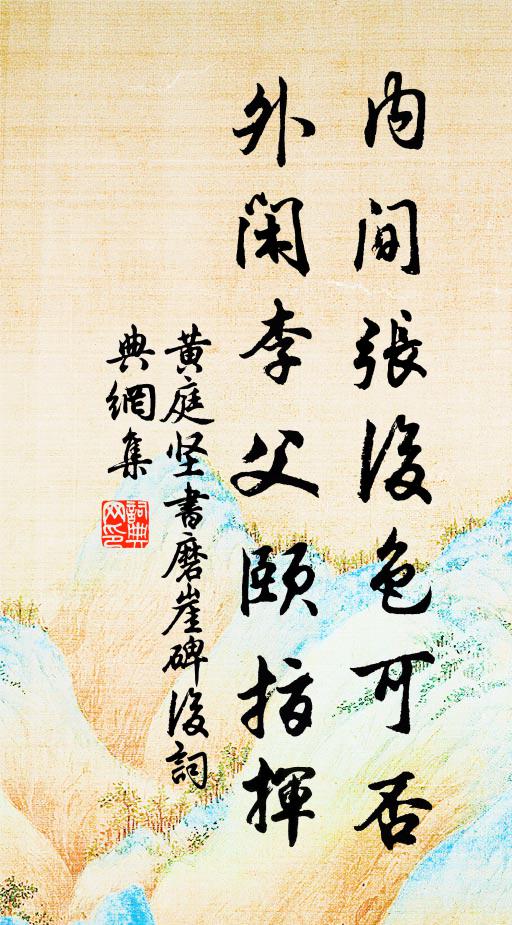 内间張後色可否
外閑李父頤指揮
黄庭坚書磨崖碑後詞
典網集
詞典网印